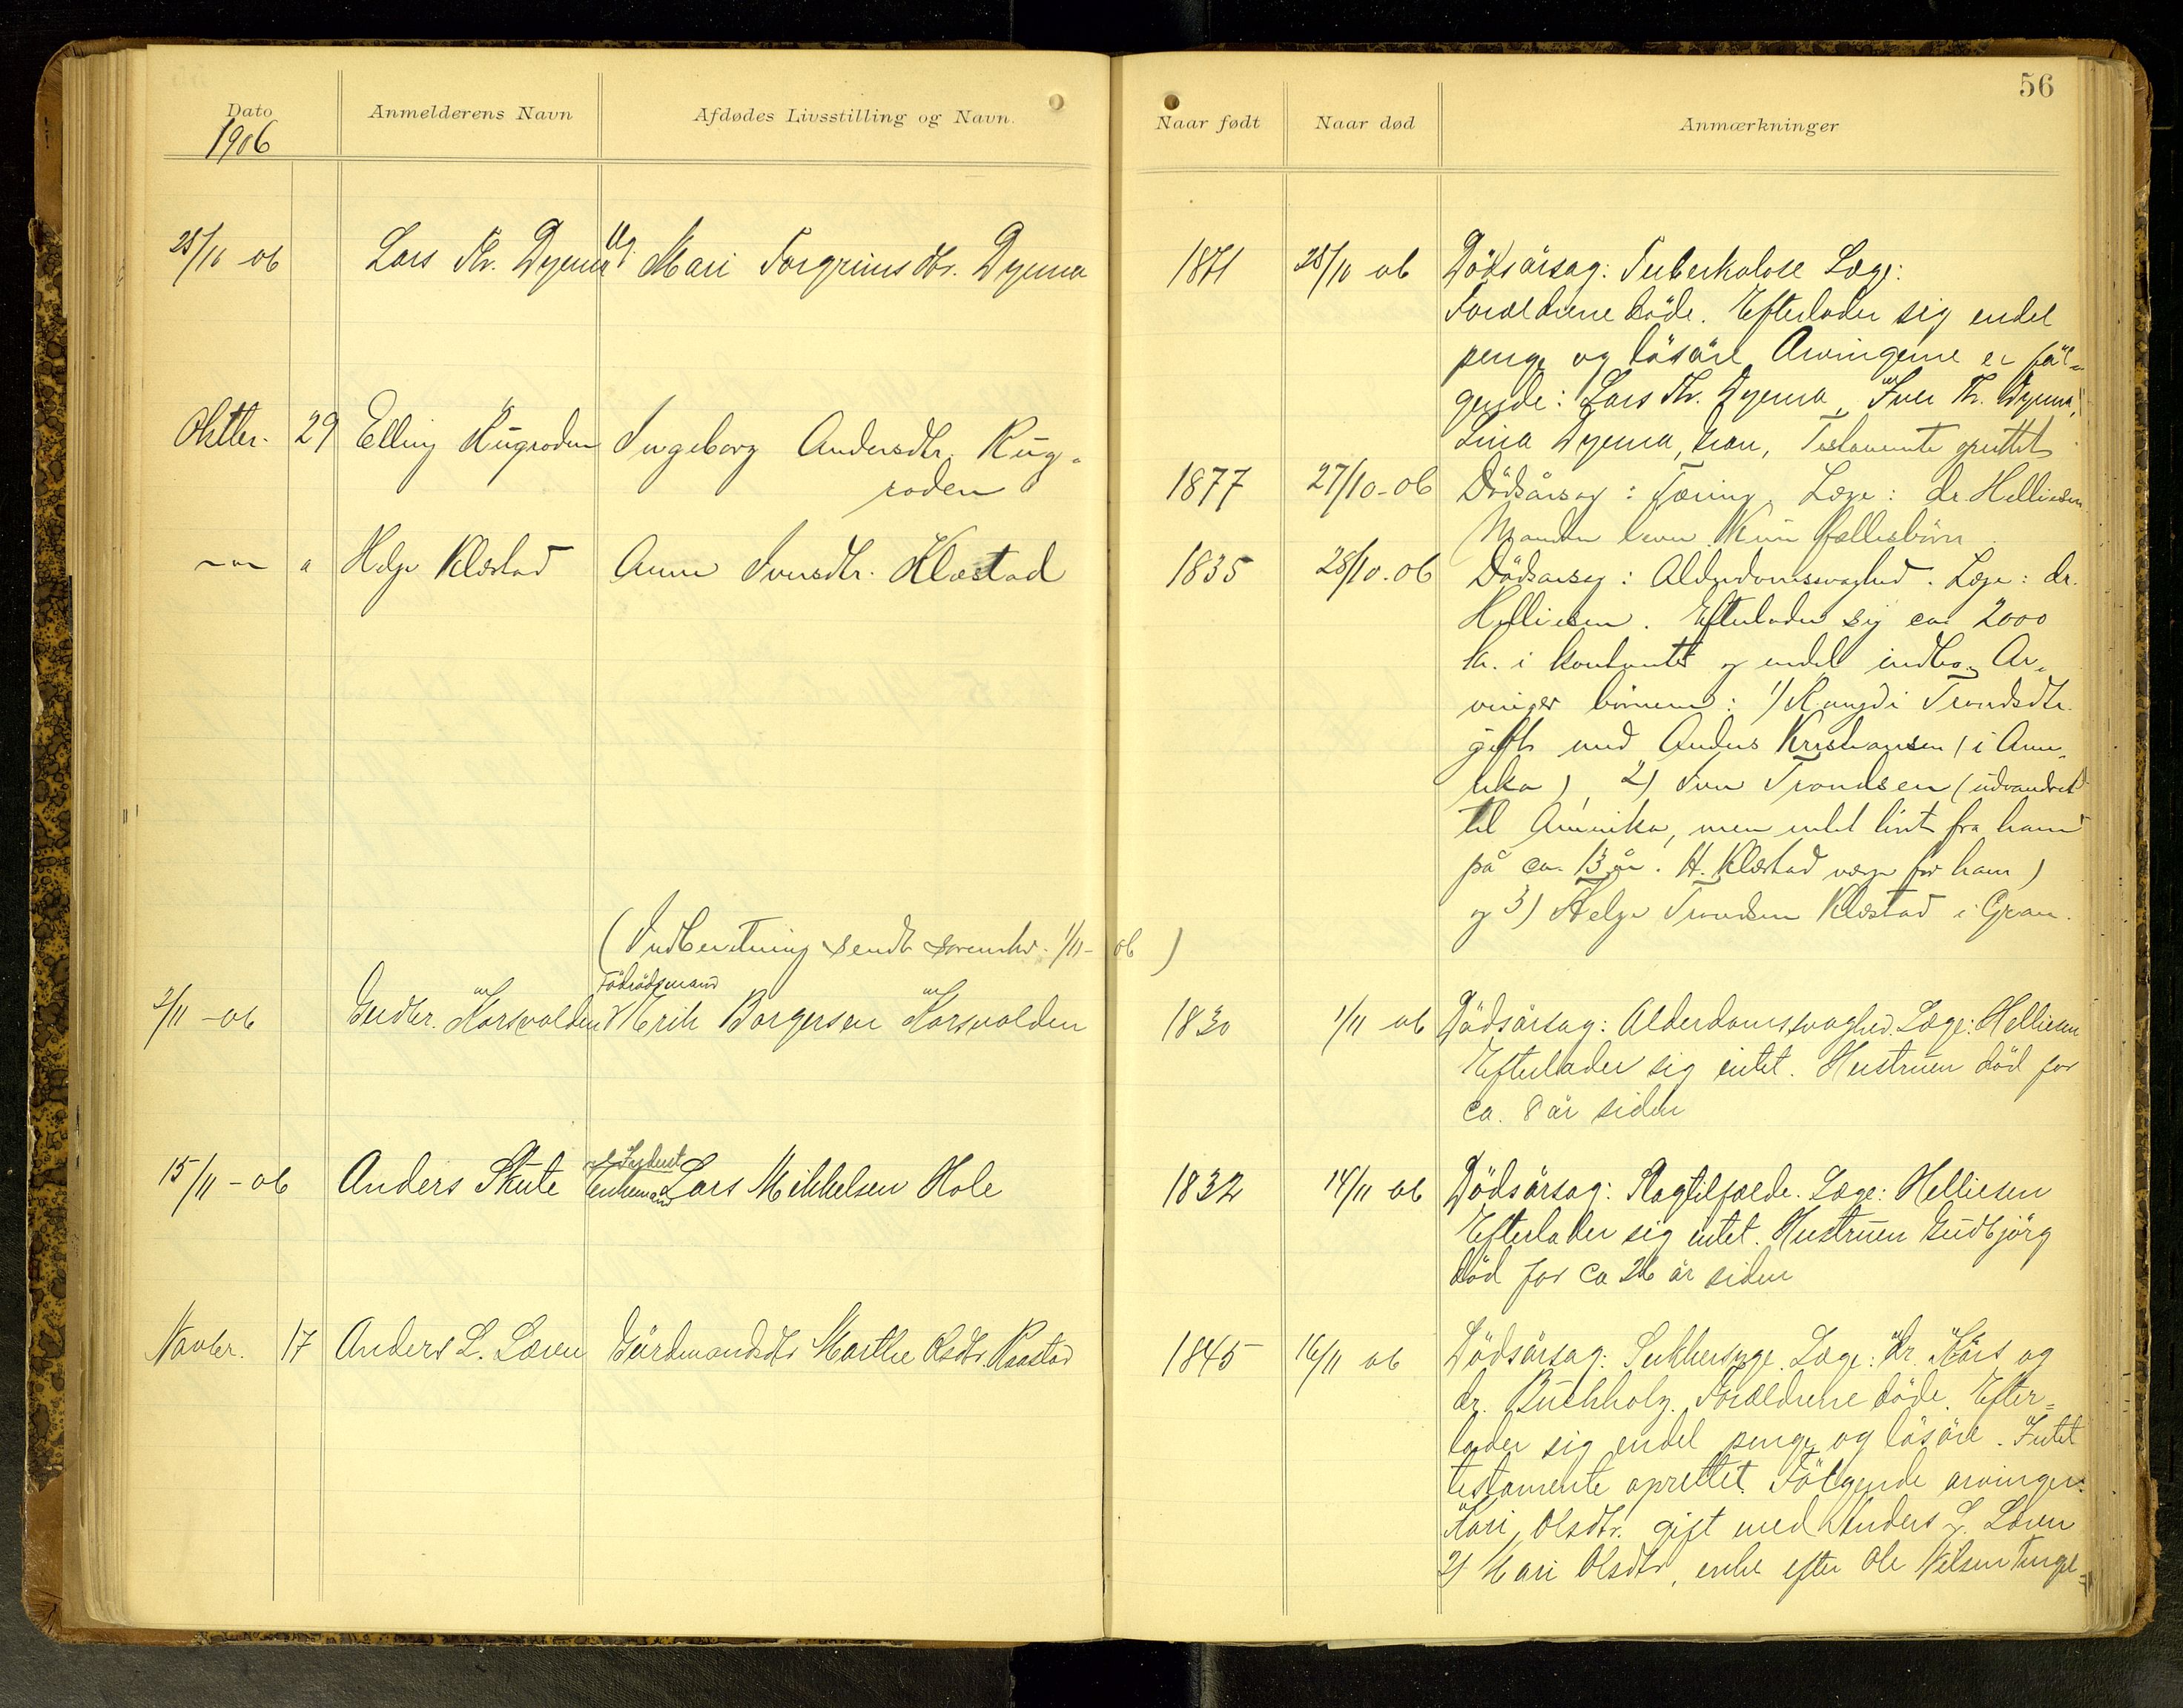 56
Dato
1906
Anmelderens Navn
Afdødes Livsstilling og Navn.
Naar født
Naar død
Anmærkninger
28/10 06 Lars Th. Dyenna Ug. Mari Torgrimsdtr. Dyenna 1871 28/10 06 Dödsårsag: Tuberkolose Læge:
Forældrene döde. Efterlader sig endel
penge og lösöre. Arvingerne er föl-
gende: Lars Th. Dyenna, Iver Th. Dyenna,
Lina Dyenna, Gran, Testamente oprettet
Oktbr. 29 Elling Rugroden Ingeborg Andersdtr. Rug-
roden
1877 27/10-06 Dödsårsag: Tæring. Læge: dr. Helliesen
Manden lever. Kun fællesbörn.
Helge Klæstad Anne Iversdtr. Klæstad 1835 28/10.06 Dödsarsag: Alderdomssvaghed. Læge: dr.
Helliesen. Efterlader sig ca. 2000
kr. i kontanter og endel indbo. Ar-
vinger börnene: 1) Rangdi Trondsdtr.
gift med Anders Kristiansen (i Ame-
rika), 2) Iver Trondsen (udvandret
til Amerika, men intet hört fra ham
på ca. 13 år. H. Klæstad værge for ham)
og 3) Helge Trondsen Klæstad i Gran.
(Indberetning sendt sorenskr. 1/11-06)
2/11-06 Gudbr. Horsvolden Föderådsmand Erik Borgersen Horsvolden 1830 1/11 06 Dödsårsag: Alderdomssvaghed. Læge: Helliesen
Efterlader sig intet. Hustruen död for
ca. 8 år siden
15/11-06 Anders Skute Enkemand Lars Mikkelsen Hole 1832 14/11 06 Dödsårsag: Slagtilfælde. Læge: Helliesen
Efterlader sig intet. Hustruen Gudbjörg
död for ca 26 år siden
Novbr. 17 Anders L. Læren Gårdmandsdtr Marthe Olsdtr. Raastad 1845 16/11 06 Dödsårsag: Sukkersyge. Læge: dr. Kårs og
dr. Buchholz. Forældrene döde. Efter-
lader sig endel penge og lösöre. Intet
testamente oprettet. Fölgende arvinger:
Kari Olsdtr. gift med Anders L. Læren
2) Mari Olsdtr, enke efter Ole Nilsen Tingel-